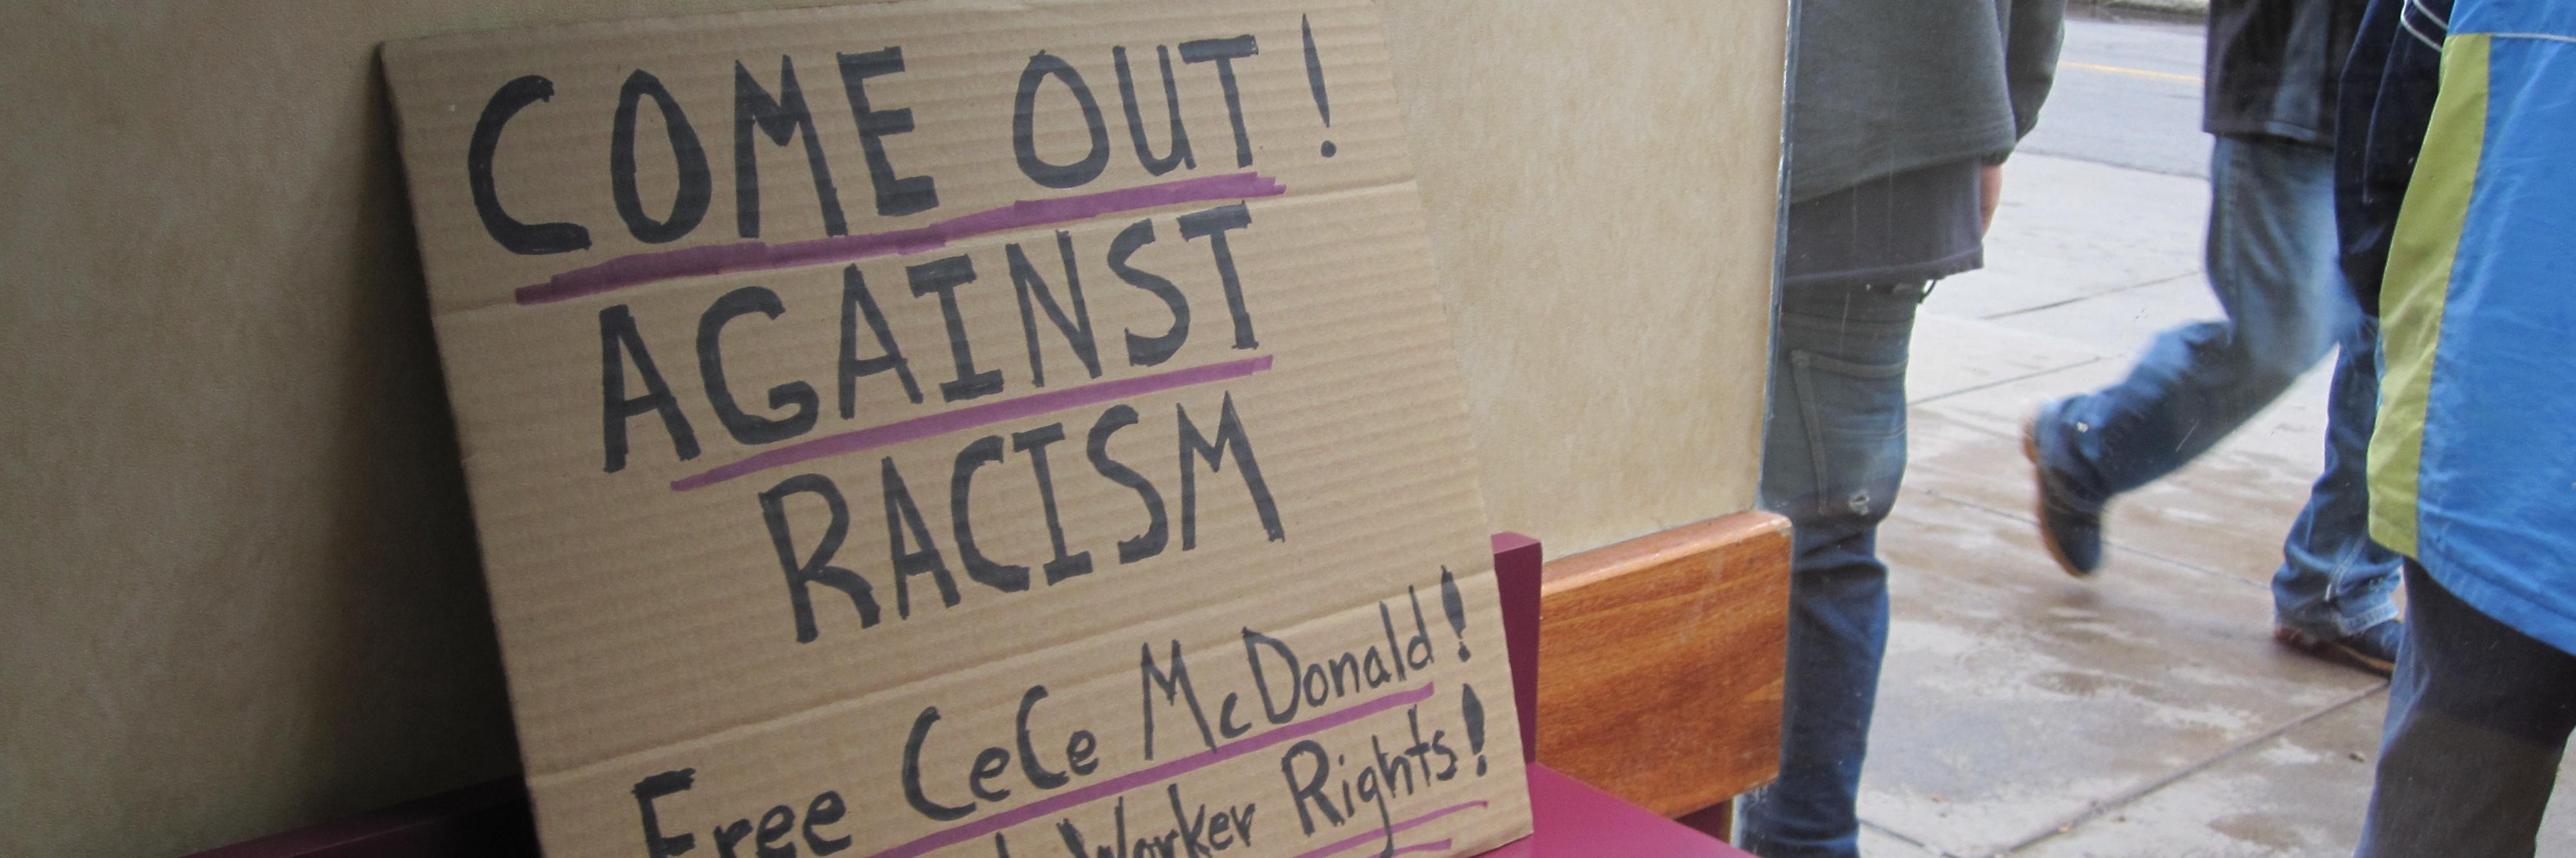 COME OUT!
AGAINST
RACISM
Free CeCe McDonald!
Worker Rights!